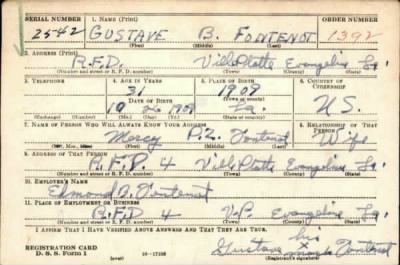 SERIAL NUMBER 1. Name (Print) ORDER NUMBER
2542 GUSTAVE B. FONTENOT 1392
(First) (Middle) (Last)
2. Address (Print)
R.F.D. Ville Platte Evangeline La.
(Number and street or R. F. D. number) (Town) (County) (State)
3. Telephone 4. Age in Years 5. Place of Birth 6. Country of Citizenship
31 1909
Date of Birth (Town or county)
10 26 1909 La. U.S.
(Exchange) (Number) (Mo.) (Day) (Yr.) (State or country)
7. Name of Person Who Will Always Know Your Address 8. Relationship of That Person
Mercy P.Z. Fontenot Wife
(Mr., Mrs., Miss) (First) (Middle) (Last)
9. Address of That Person
R.F.D 4 Ville Platte Evangeline La.
(Number and street or R. F. D. number) (Town) (County) (State)
10. Employer's Name
Edmond A. Fontenot
11. Place of Employment or Business
R.F.D 4 V.P. Evangeline La.
(Number and street or R. F. D. number) (Town) (County) (State)
I Affirm That I Have Verified Above Answers and That They Are True.
his
REGISTRATION CARD Gustave x Fontenot
D. S. S. Form 1 (over) 16-17105 mark
(Registrant's signature)